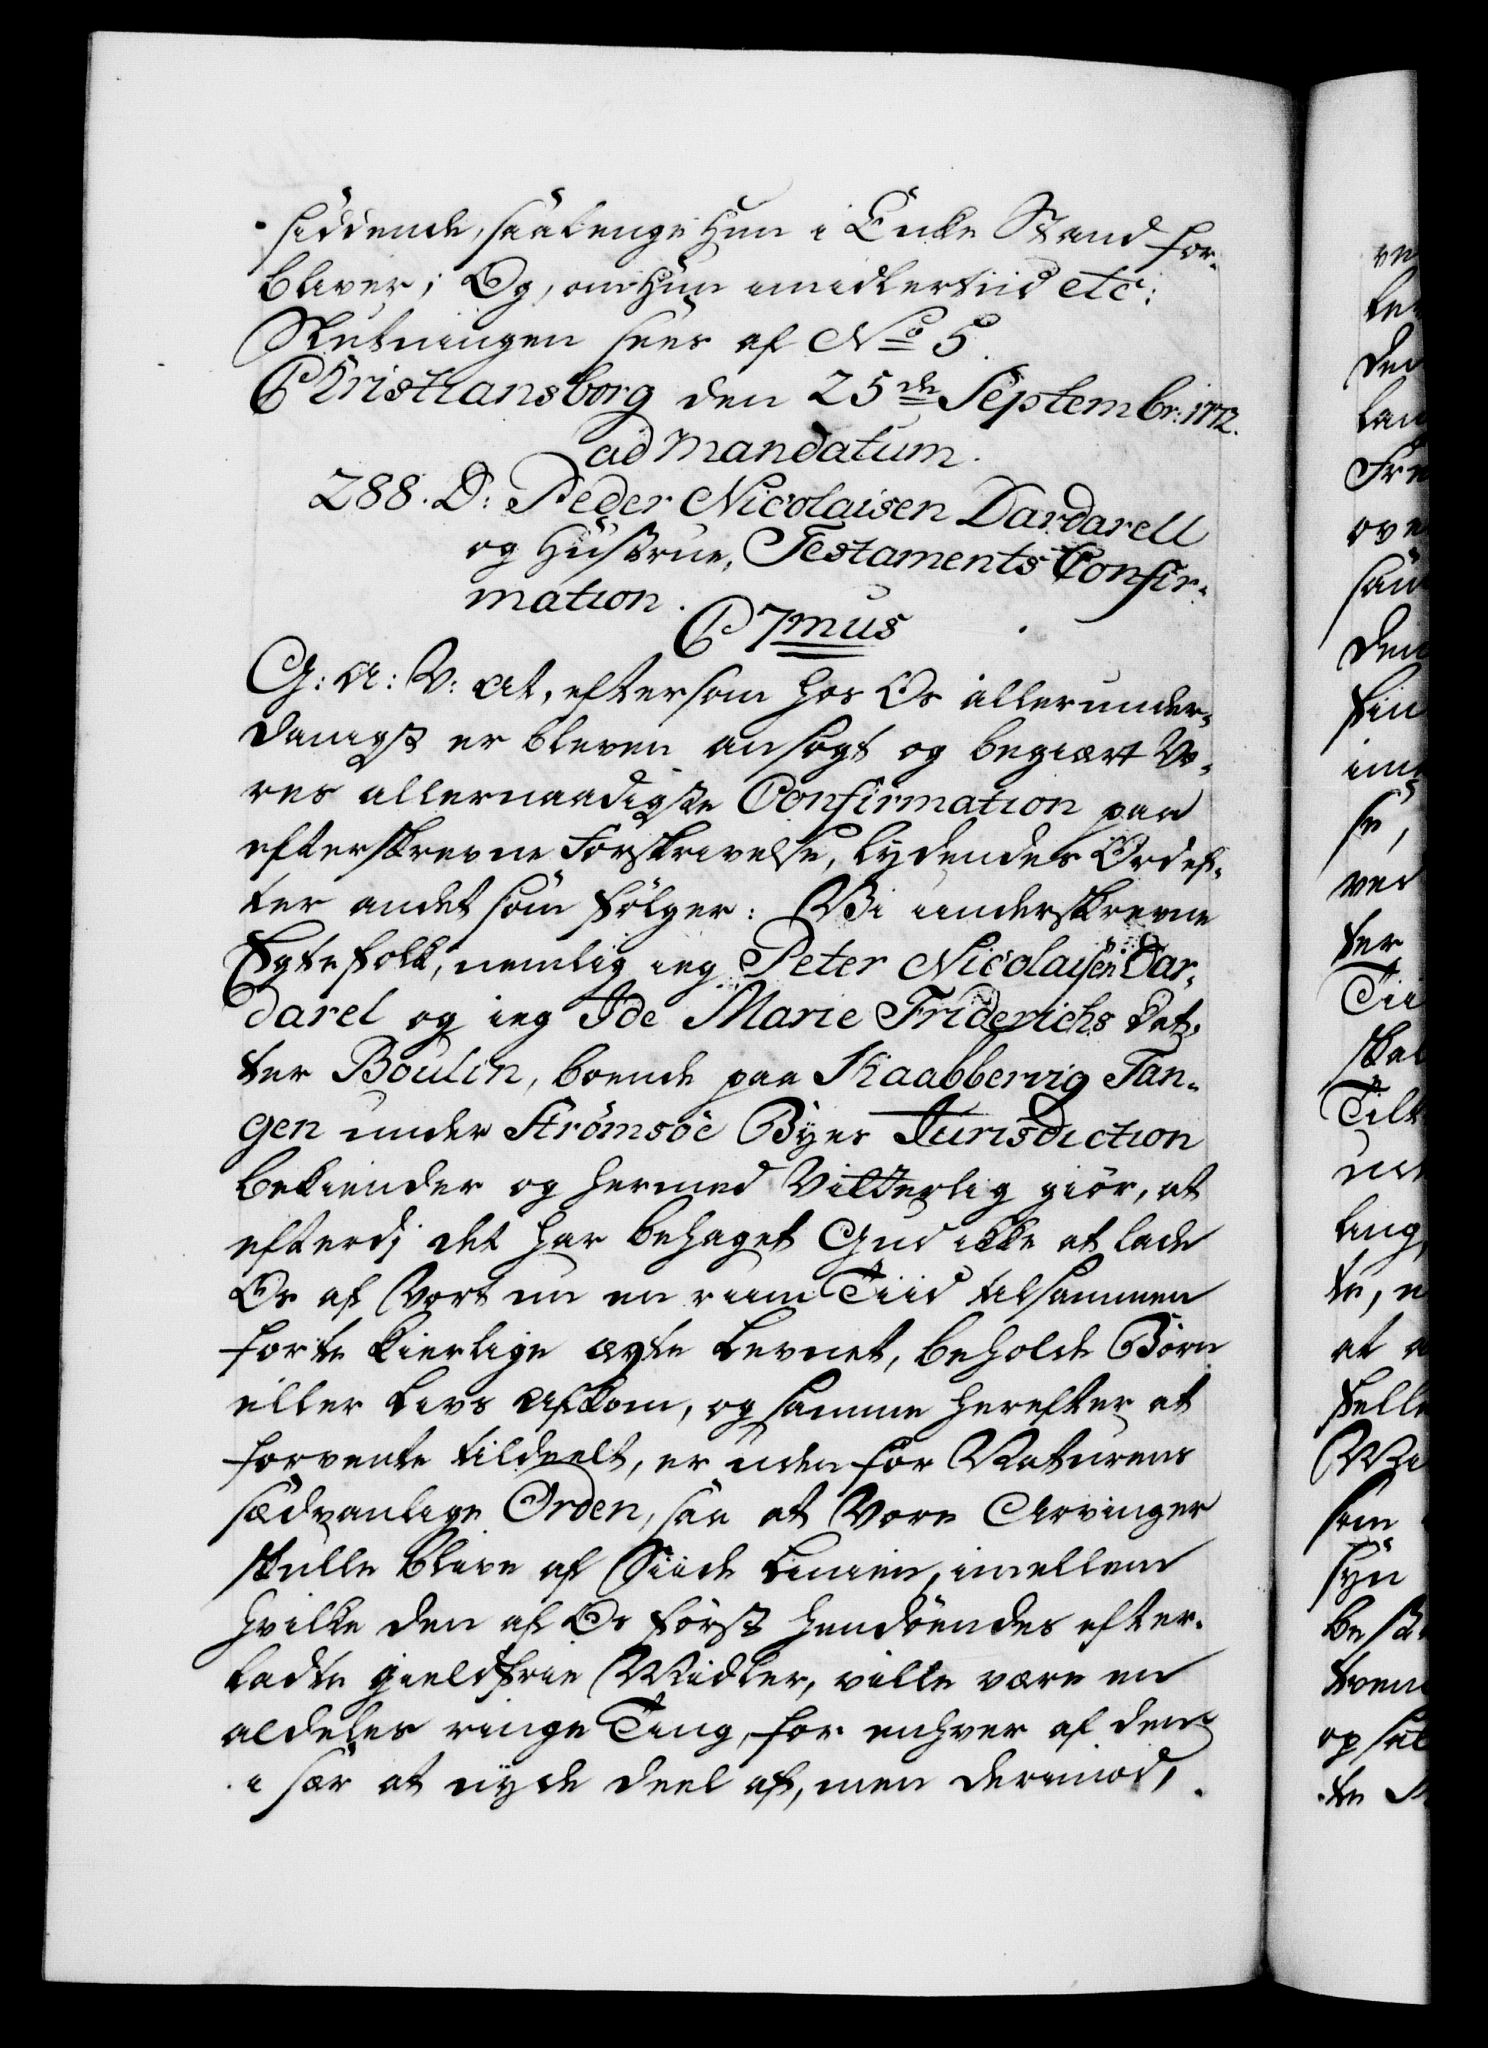 siddende, saalenge Hun i Enke Stand for-
bliver; Og, om Hun imidlertiid etc:
Slutningen sees af No 5.
Christiansborg den 25de Septembr: 1772.
ad Mandatum.
288. D: Peder Nicolaisen Dardarell
og Hustrue, Testaments Confir-
mation.
C7mus
G: A: V: At, eftersom hos Os allerunder-
danigst er bleven ansøgt og begiært Vo-
res allernaadigste Confirmation paa
efterskrevne Forskrivelse, lydendes Ord ef-
ter andet som følger: Vi underskrevne
Egtefolk, nemlig ieg Peter Nicolaisen Dar-
darel og ieg Ide Marie Friderichs Dat-
ter Boulin, boende paa Kaabbervig Tan-
gen under Strømsöe Byes Jurisdiction
bekiender og hermed Vitterlig giör, at
efterdj det har behaget Gud ikke at lade
Os af Vort nu en rum Tiid tilsammen
forte kierlige ægte Levnet, beholde Börn
eller Livs Afkom, og samme herefter at
forvente tildeelt, er uden for Naturens
sædvanlige Orden, saa at Vore Arvinger
skulle blive af Siide Linien, imellem
hvilke den af Os først hendöendes efter-
ladte gieldfrie Midler, ville være en
aldeles ringe Ting, for enhver af dem
i sær at nyde deel af, men derimod,